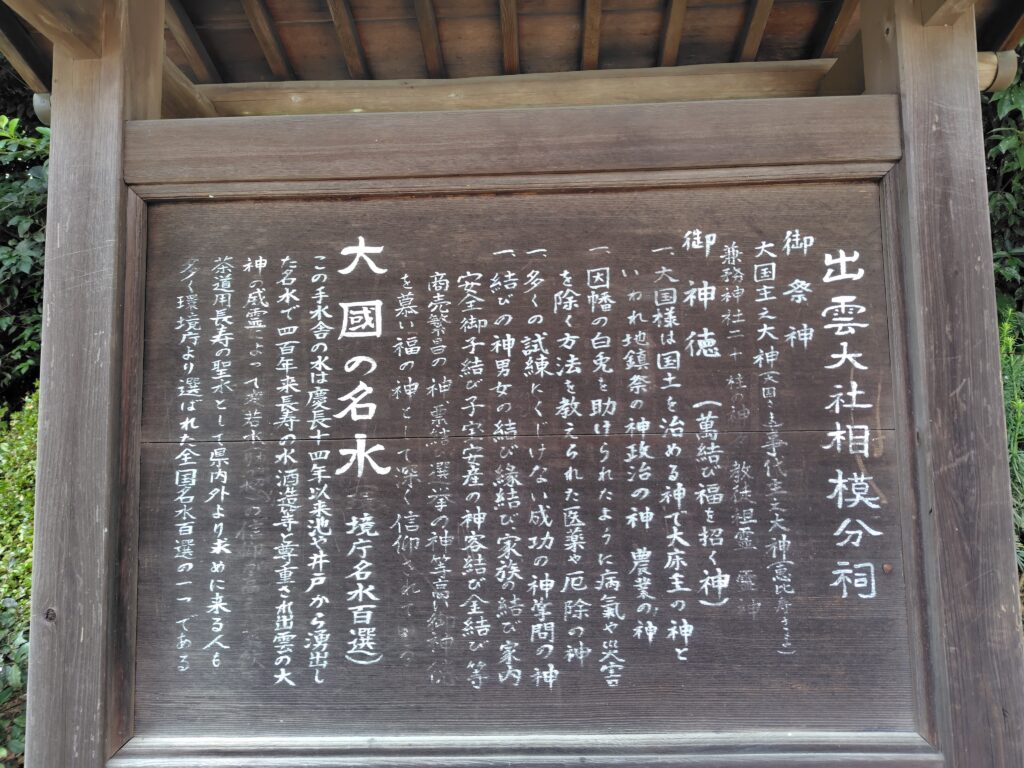 出雲大社相模分祠
御祭神
大国主之大神（大国さま）事代主之大神（恵比寿さま）
兼務神社二十柱の神 教徒祖霊 神
御神徳（萬結び福を招く神）
一、大国様は国土を治める神で大床主の神と
いわれ地鎮祭の神政治の神 農業の神
一、因幡の白兎を助けられたように病氣や災害
を除く方法を教えられた医薬や厄除の神
一、多くの試練にくじけない成功の神学問の神
一、結びの神男女の結び縁結び家族の結び家内
安全御子結び子宝安産の神客結び全結び等
商売繁昌の神 票結び選挙の神等高い御神徳
を慕い福の神として深く信仰されて
大國の名水 境庁名水百選）
この手水舎の水は慶長十四年以来池や井戸から湧出し
た名水で四百年来長寿の水酒造等と尊重され出雲の大
神の威霊によって 若水 の信仰
茶道用長寿の聖水として県内外より求めに来る人も
多く環境庁より選ばれた全国名水百選の一つである